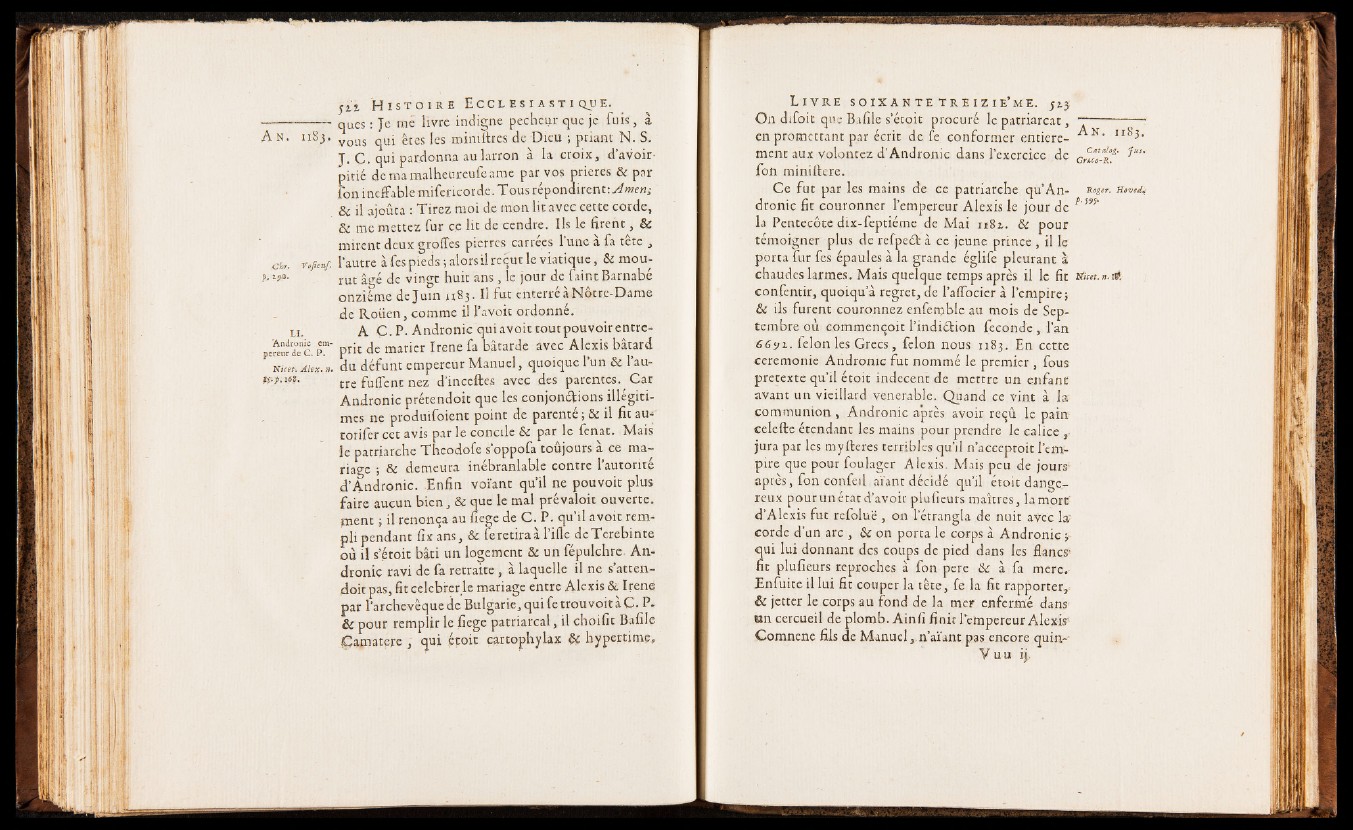 522 HISTOIRE ECCLESIASTIQUE.
AN. 1183.
ques : Je me livre indigne pecheur que je ſuis, à
vous qui êtes les miniſtres de Dieu ; priant N. S.
J. C. qui pardonna au larron à la croix, d'avoir
pitié de ma malheureuſe ame par vos prieres & par
ſon ineffable miſericorde. Tous répondirent: Amen;
& il ajoûta : Tirez moi de mon lit avec cette corde,
& me mettez ſur ce lit de cendre. Ils le firent, &
mirent deux groſſes pierres carrées l'une à ſa tête,
Chr. Voſienſ.
p. 292.
l'autre à ſes pieds ; alors il reçut le viatique, & mou-
rut âgé de vingt huit ans, le jour de ſaint Barnabé
onziéme de Juin 1183. Il fut enterré à Nôtre-Dame
de Roüen, comme il l'avoit ordonné.
LI.
Andronic em-
pereur de C. P.
Nicet. Alex. n.
p. 168.
A C. P. Andronic qui avoit tout pouvoir entre-
prit de marier Irene ſa bâtarde avec Alexis bâtard
du défunt empereur Manuel, quoique l'un & l'au-
tre fuſſent nez d'inceſtes avec des parentes. Car
Andronic prétendoit que les conjonctions illégiti-
mes ne produiſoient point de parenté ; & il fit au-
toriſer cet avis par le concile & par le ſenat. Mais
le patriarche Theodoſe s'oppoſa toûjours à ce ma-
riage ; & demeura inébranlable contre l'autorité
d'Andronic. Enfin voïant qu'il ne pouvoit plus
faire aucun bien, & que le mal prévaloit ouverte-
ment ; il renonça au ſiege de C. P. qu'il avoit rem-
pli pendant ſix ans, & ſe retira à l'iſle de Terebinte
où il s'étoit bâti un logement & un ſépulchre. An-
dronic ravi de ſa retraite, à laquelle il ne s'atten-
doit pas, fit celebrer le mariage entre Alexis & Irene
par l'archevêque de Bulgarie, qui ſe trouvoit à C. P.
& pour remplir le ſiege patriarcal, il choiſit Baſile
Camatere, qui étoit cartophylax & hypertime.
LIVRE SOIXANTE TREIZIE'ME. 523
AN. 1183.
On diſoit que Baſile s'étoit procuré le patriarcat,
en promettant par écrit de ſe conformer entiere-
ment aux volontez d'Andronic dans l'exercice de
ſon miniſtere.
Catalog. Jus.
Græco-R.
Ce fut par les mains de ce patriarche qu'An-
dronic fit couronner l'empereur Alexis le jour de
Roger. Hoved.
p. 599.
la Pentecôte dix-ſeptiéme de Mai 1182. & pour
témoigner plus de reſpect à ce jeune prince, il le
porta ſur ſes épaules à la grande égliſe pleurant à
chaudes larmes. Mais quelque temps après il le fit
Nicet. n.
conſentir, quoiqu'à regret, de l'aſſocier à l'empire ;
& ils furent couronnez enſemble au mois de Sep-
tembre où commençoit l'indiction ſeconde, l'an
6692. ſelon les Grecs, ſelon nous 1183. En cette
ceremonie Andronic fut nommé le premier, ſous
pretexte qu'il étoit indecent de mettre un enfant
avant un vieillard venerable. Quand ce vint à la
communion, Andronic après avoir reçû le pain
celeſte étendant les mains pour prendre le calice,
jura par les myſteres terribles qu'il n'acceptoit l'em-
pire que pour ſoulager Alexis. Mais peu de jours
après, ſon conſeil aïant décidé qu'il étoit dange-
reux pour un état d'avoir pluſieurs maîtres, la mort
d'Alexis fut reſoluë, on l'étrangla de nuit avec la
corde d'un arc, & on porta le corps à Andronic ;
qui lui donnant des coups de pied dans les flancs
fit pluſieurs reproches à ſon pere & à ſa mere.
Enſuite il lui fit couper la tête, ſe la fit rapporter,
& jetter le corps au fond de la mer enfermé dans
un cercueil de plomb. Ainſi finit l'empereur Alexis
Comnene fils de Manuel, n'aïant pas encore quin-
Vuu ij